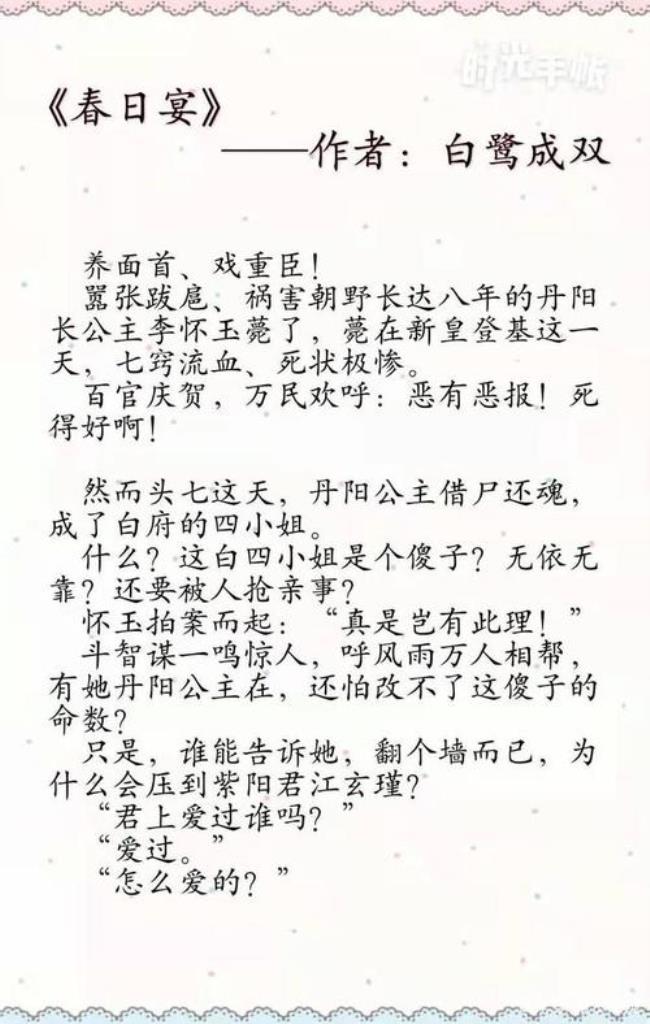 时光手帐
《春日宴》
——作者：白鹭成双
养面首、戏重臣！
嚣张跋扈、祸害朝野长达八年的丹阳
长公主李怀玉薨了，薨在新皇登基这一
天，七窍流血、死状极惨。
百官庆贺，万民欢呼：恶有恶报！死
得好啊！
然而头七这天，丹阳公主借尸还魂，
成了白府的四小姐。
什么？这白四小姐是个傻子？无依无
靠？还要被人抢亲事？
怀玉拍案而起：“真是岂有此理！”
斗智谋一鸣惊人，呼风雨万人相帮，
有她丹阳公主在，还怕改不了这傻子的
命数？
只是，谁能告诉她，翻个墙而已，为
什么会压到紫阳君江玄瑾？
“君上爱过谁吗？”
“爱过。”
“怎么爱的？”